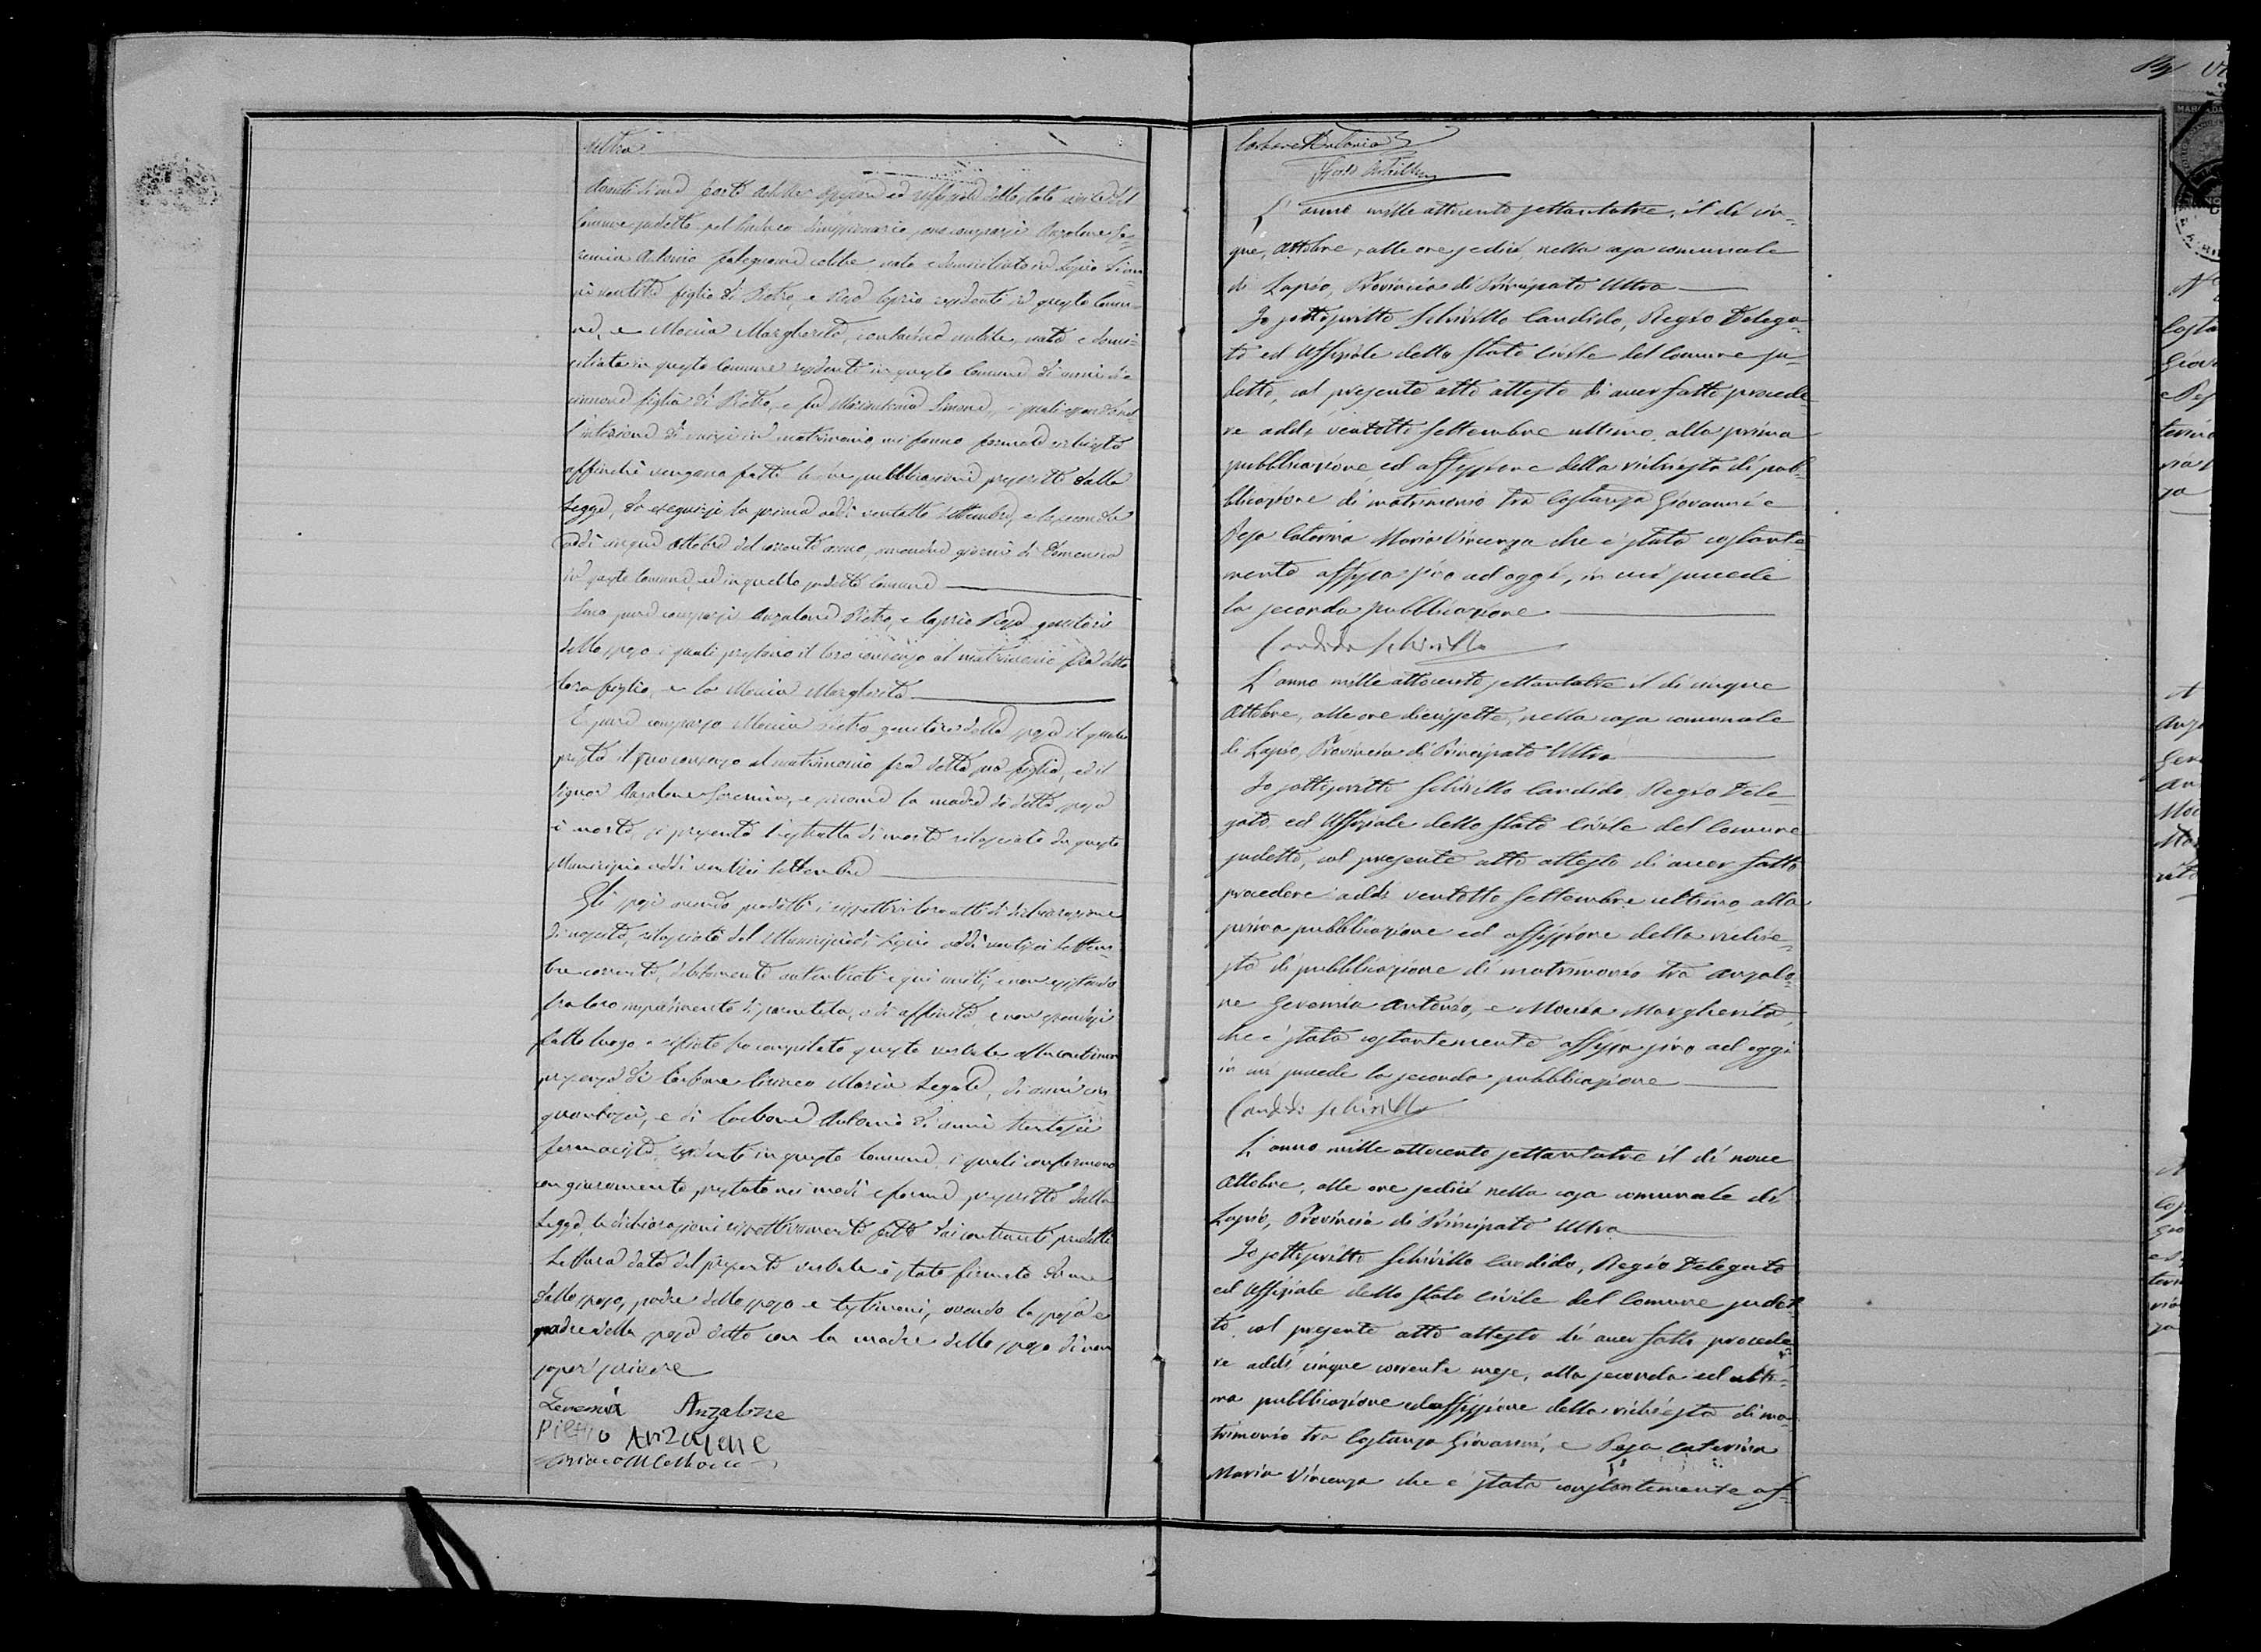 Ultra
Avanti di me Forte Achille Assessore ed Uffiziale dello stato civile del
Comune sudetto pel Sindaco dimissionario, sono comparsi Anzalone Ge=
remia Antonio falegname celibe nato e domiciliato in Lapio di an
ni ventitre figlio di Pietro, e Rosa Caprio residente in questo Comu=
ne, e Moccia Margherita, contadina nubile, nata e domi=
ciliata in questo Comune residente in questo Comune di anni di=
cinnove figlia di Pietro, e fu Mariantonia Simone, i quali
l'intenzione di unirsi in matrimonio mi fanno formale richiesta
affinchè vengano fatte le due pubblicazioni prescritte dalla
Legge, da eseguirsi la prima addì ventotto settembre, e la seconda
addì cinque Ottobre del corrente anno, amendue giorni di Domenica
in questo Comune, ed in quello sudetto Comune
Sono pure comparsi Anzalone Pietro, e Caprio Rosa genitori
dello sposo i quali prestano il loro consenso al matrimonio fra detto
loro figlio, e la Moccia Margherita
E pure comparso Moccia Pietro genitore della sposa il quale
presta il suo consenso al matrimonio fra detta sua figlia, ed il
signor Anzalone Geremia, e siccome la madre di detta sposa
è morta, si presenta l'estratto di morte rilasciato da questo
Municipio addì ventisei settembre
Gli sposi avendo prodotti i rispettivi loro atti di dichiarazione
di nascita, rilasciati dal Municipio di Lapio addì ventisei settem=
bre corrente, debitamente autenticati e qui uniti, e non esistendo
fra loro impedimento di parentela, o di affinità, e non essendosi
fatto luogo a rifiuto ho compilato questo verbale alla continua
presenza di Carbone Ciriaco Maria Legale, di anni cin
quantasei, e di Carbone Antonio di anni trentasei
farmacista, residenti in questo Comune, i quali confermano
con giuramento prestato nei modi e forme prescritte dalla
Legge, le dichiarazioni rispettivamente fatte dai contraenti predetti
Lettura data del presente verbale è stato firmato da me
dallo sposo, padre dello sposo e testimoni, avendo la sposa e
padre della sposa detto con la madre dello sposo di non
saper scrivere
Geremia Anzalone
Pietro Anzalone
Ciriaco M Carbone
Carbone Antonio
Forte Achille
L'anno mille ottocento settantatre, il dì cin=
que, Ottobre, alle ore sedici, nella casa comunale
di Lapio, Provincia di Principato Ultra
Io sottoscritto Schirillo Candido, Regio Delega=
to ed Uffiziale dello Stato Civile del Comune su
detto, col presente atto attesto di aver fatto procede=
re addì ventotto Settembre ultimo, alla prima
pubblicazione ed affissione della richiesta di pub=
blicazione di matrimonio tra Costanza Giovanni e
Pesa Caterina Maria Vincenza che è stata costante=
mente affissa sino ad oggi, in cui succede
la seconda pubblicazione
Candido Schirillo
L'anno mille ottocento settantatre il dì cinque
Ottobre, alle ore diecissette, nella casa comunale
di Lapio, Provincia di Principato Ultra
Io sottoscritto Schirillo Candido Regio Dele=
gato ed Uffiziale dello Stato Civile del Comune
sudetto, col presente atto attesto di aver fatto
procedere addì ventotto Settembre ultimo, alla
prima pubblicazione ed affissione della richie=
sta di pubblicazione di matrimonio tra Anzalo=
ne Geremia Antonio, e Moccia Margherita,
che è stata costantemente affissa sino ad oggi
in cui succede la seconda pubblicazione
Candido Schirillo
L'anno mille ottocento settantatre il dì nove
Ottobre, alle ore sedici nella casa comunale di
Lapio, Provincia di Principato Ultra
Io sottoscritto Schirillo Candido, Regio Delegato
ed Uffiziale dello Stato Civile del Comune sudet=
to, col presente atto attesto di aver fatto procede
re addì cinque corrente mese, alla seconda ed ulti=
ma pubblicazione ed affissione della richiesta di ma=
trimonio tra Costanza Giovanni, e Pesa Caterina
Maria Vincenza che è stata costantemente af=